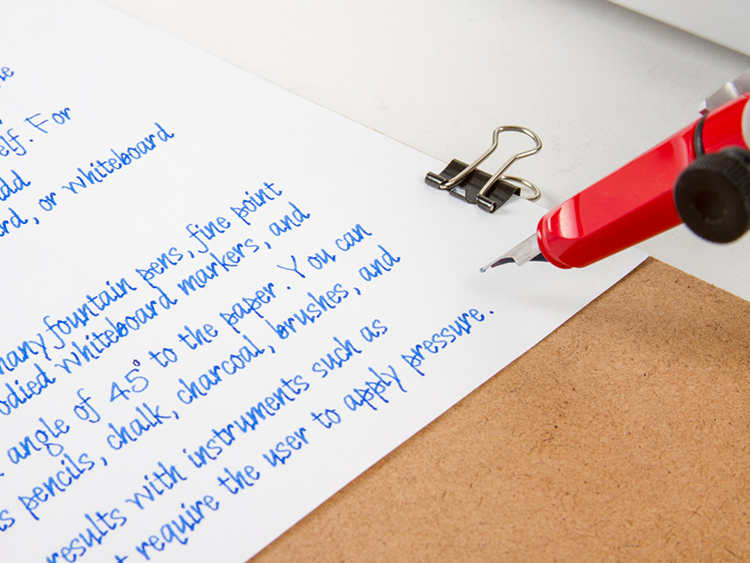 elf. For
add
rd, or whiteboard
many fountain pens, fine point
odied whiteboard markers, and
angle of 45° to the paper. You can
s pencils, chalk, charcoal, brushes, and
results with instruments such as
t require the user to apply pressure.